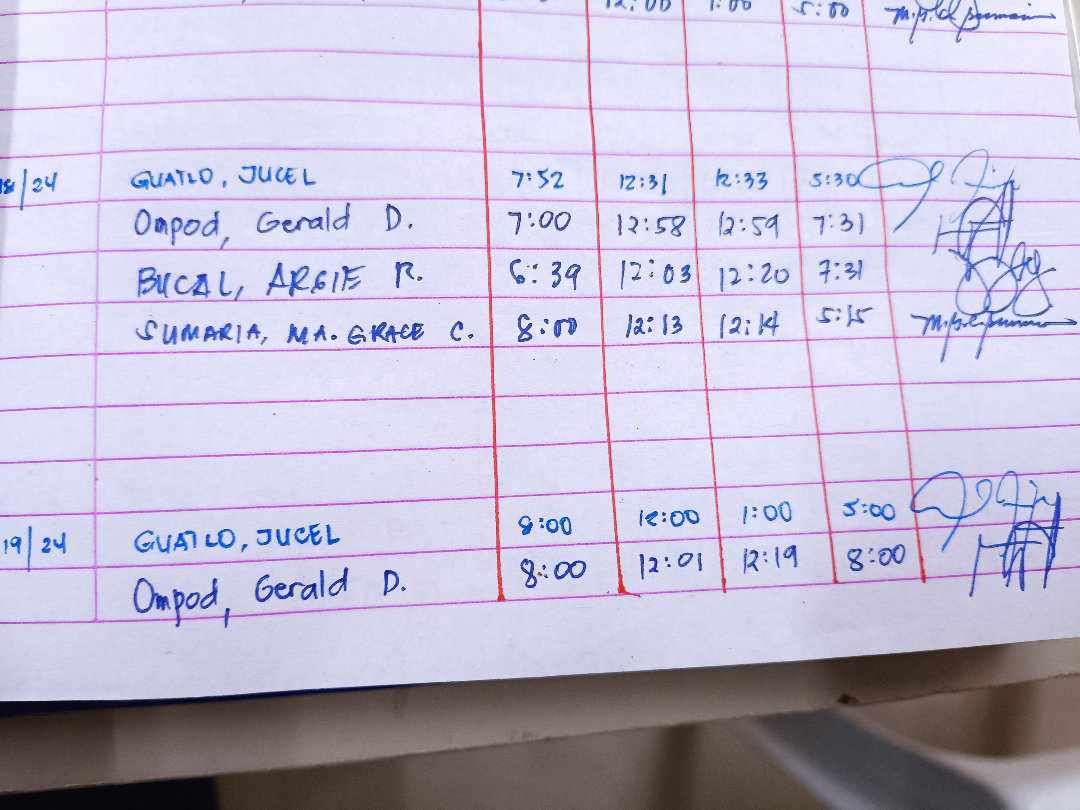 12:00 1:00 5:00
18/24 GUATLO, JUCEL 7:52 12:31 12:33 5:30
Ompod, Gerald D. 7:00 12:58 12:59 7:31
BUCAL, ARGIE R. 6:39 12:03 12:20 7:31
SUMARIA, MA. GRACE C. 8:00 12:13 12:14 5:15
19/24 GUATLO, JUCEL 8:00 12:00 1:00 5:00
Ompod, Gerald D. 8:00 12:01 12:19 8:00